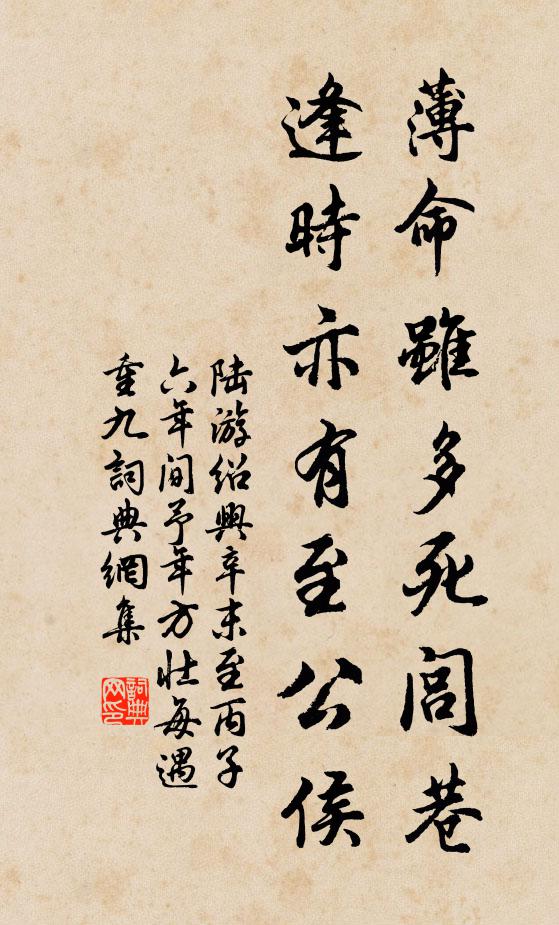 薄命雖多死閭巷
逢時亦有至公侯
陆游绍興辛未至丙子
六年间予年方壮每遇
重九詞典網集
詞典网印